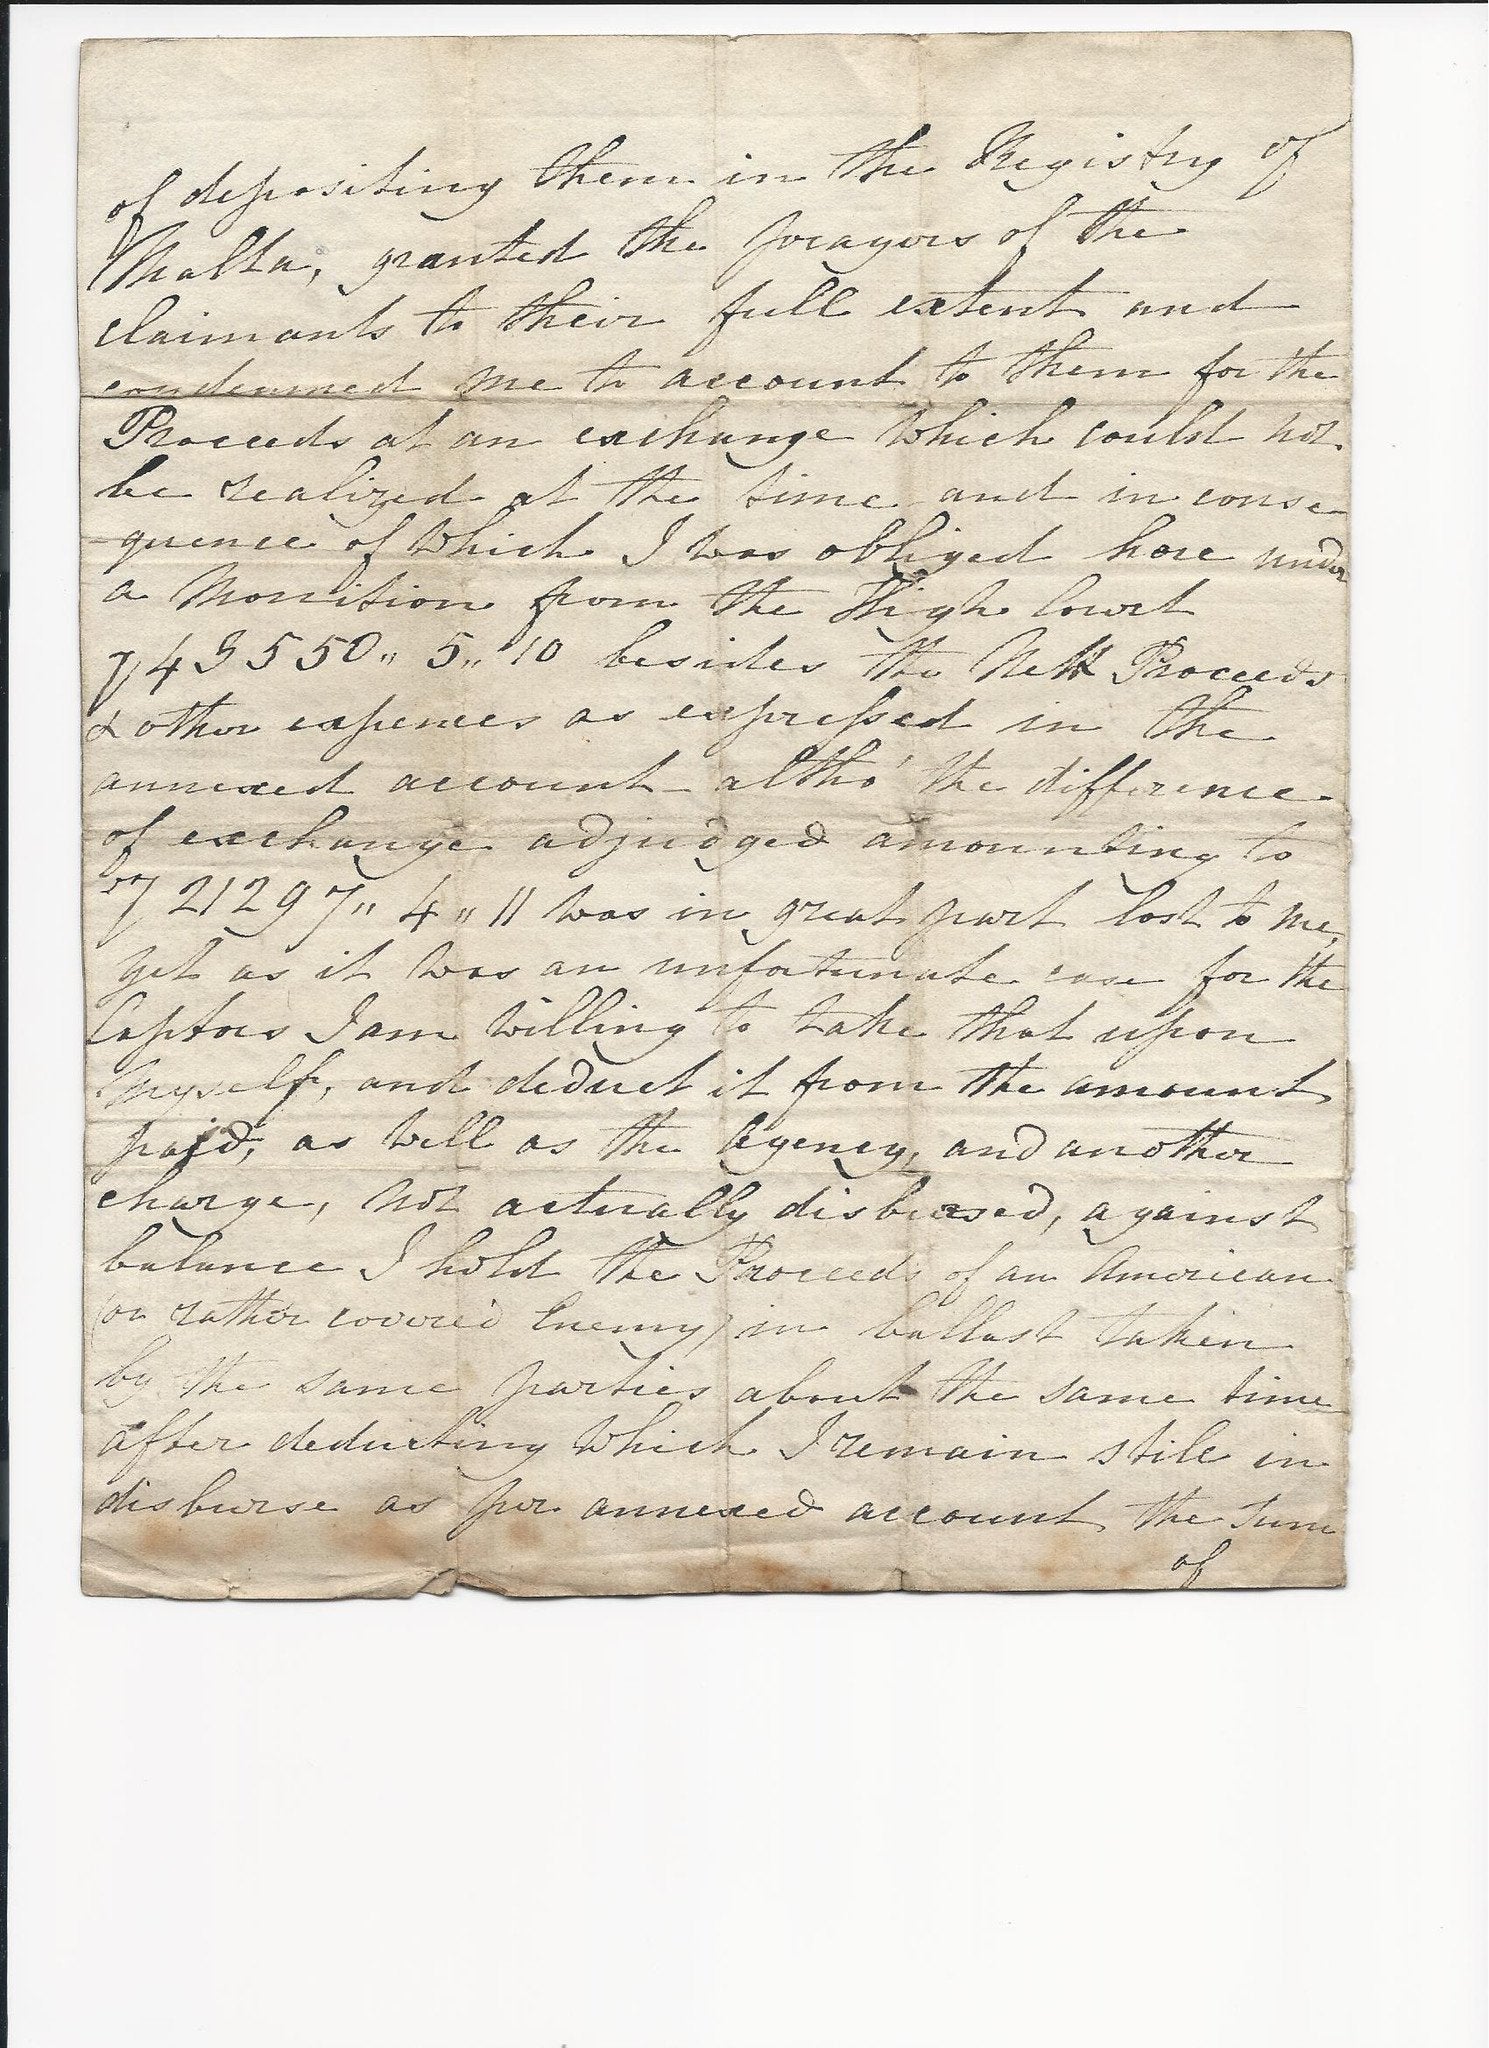 of depositing them in the Registry of
Malta, granted the prayers of the
claimants to their full extent and
condemned me to account to them for the
Proceeds at an exchange which could not
be realized at the time and in conse
quence of which I was obliged here under
a Monition from the High Court
43550 " 5 " 10 besides the Nett Proceeds
& other expences as expressed in the
annexed account - altho' the difference
of exchange adjudged amounting to
21297 " 4 " 11 was in great part lost to me,
yet as it was an unfortunate case for the
Captors I am willing to take that upon
myself, and deduct it from the amount
paid, as well as the Agency, and another
charge, not actually disbursed, against
balance I hold the Proceeds of an American
(or rather cover'd Enemy) in ballast taken
by the same parties about the same time
after deducting which I remain still in
disburse as per annexed account the Sum
of